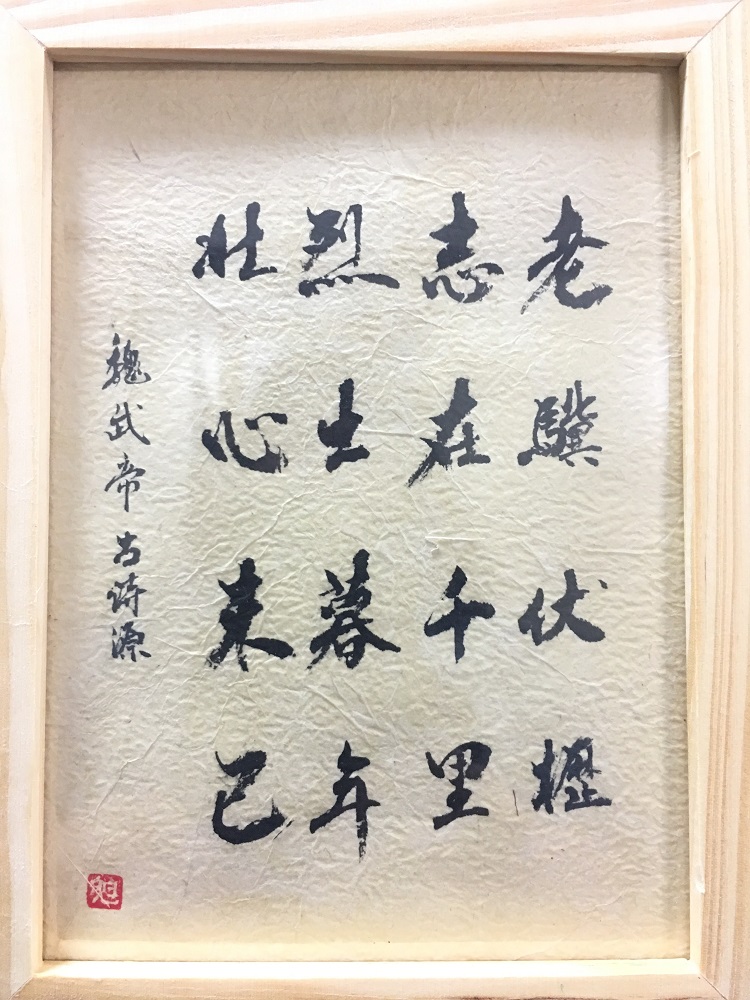 老驥伏櫪
志在千里
烈士暮年
壮心未已
魏武帝古詩源